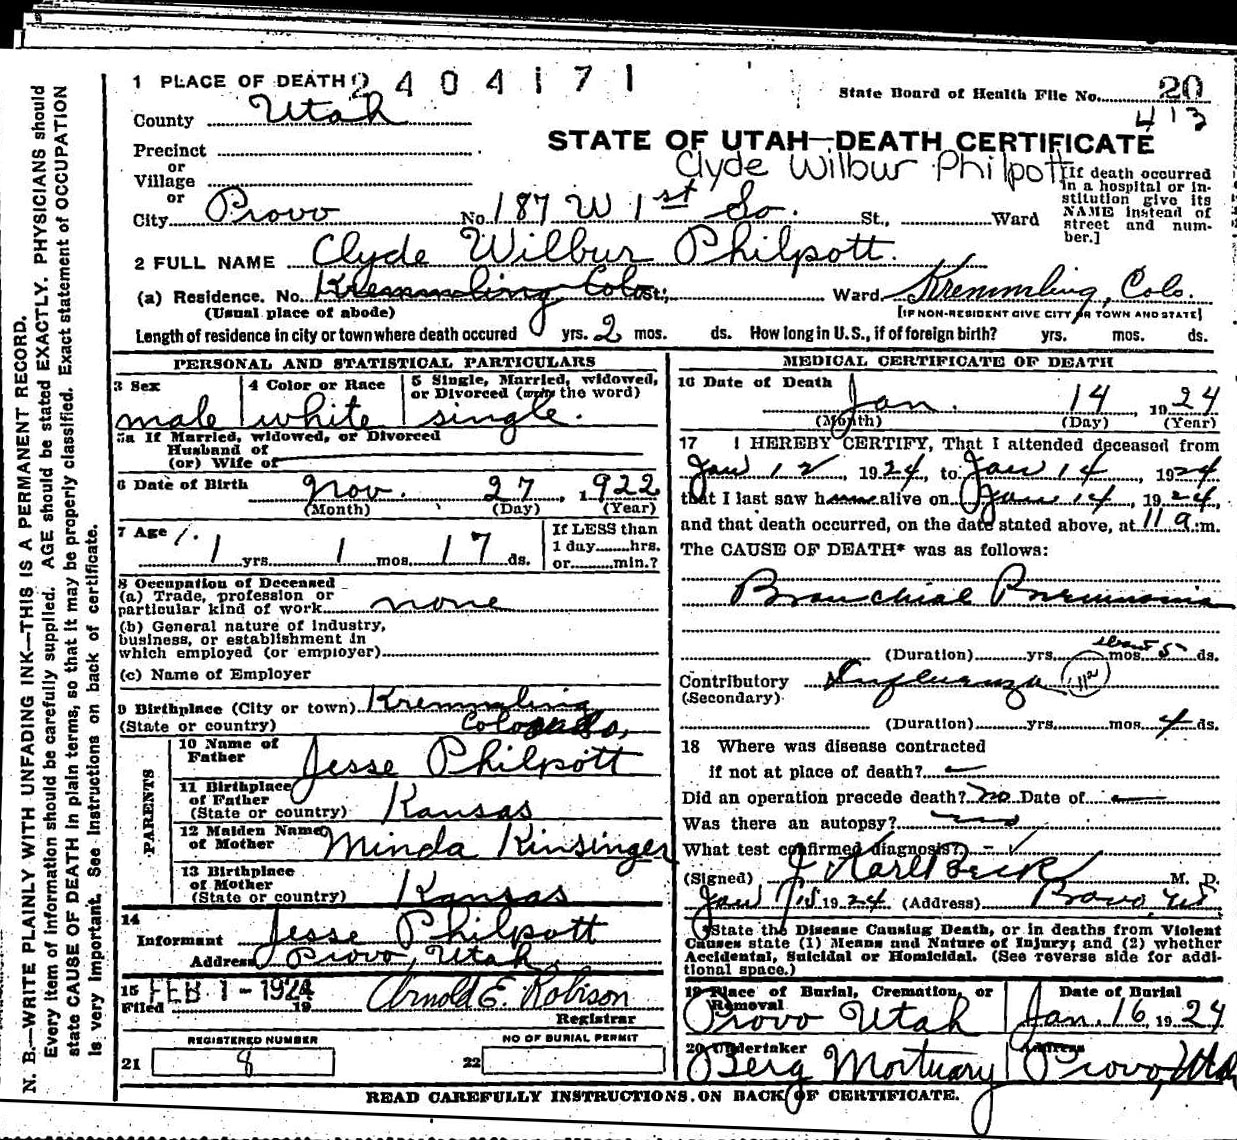 1 PLACE OF DEATH 2404171
State Board of Health File No. 20
413
County Utah
STATE OF UTAH—DEATH CERTIFICATE
Precinct
or
Village
or
Clyde Wilbur Philpott
[If death occurred in a hospital or institution give its NAME instead of street and number.]
City Provo No. 187 W 1st So. St., Ward
2 FULL NAME Clyde Wilbur Philpott.
(a) Residence. No. Kremmling Colo St.; Ward. Kremmling, Colo.
(Usual place of abode) [IF NON-RESIDENT GIVE CITY OR TOWN AND STATE]
Length of residence in city or town where death occured yrs. 2 mos. ds. How long in U.S., if of foreign birth? yrs. mos. ds.
PERSONAL AND STATISTICAL PARTICULARS
3 Sex 4 Color or Race 5 Single, Married, widowed, or Divorced (write the word)
male white single.
5a If Married, widowed, or Divorced
Husband of
(or) Wife of
6 Date of Birth Nov. 27, 1922
(Month) (Day) (Year)
7 Age 1 yrs. 1 mos. 17 ds.
If LESS than
1 day hrs.
or min.?
8 Occupation of Deceased
(a) Trade, profession or
particular kind of work none
(b) General nature of industry,
business, or establishment in
which employed (or employer)
(c) Name of Employer
9 Birthplace (City or town) Kremmling
(State or country) Colorado,
PARENTS
10 Name of
Father Jesse Philpott
11 Birthplace
of Father
(State or country) Kansas
12 Maiden Name
of Mother Minda Kinsinger
13 Birthplace
of Mother
(State or country) Kansas
14
Informant Jesse Philpott
Address Provo, Utah
15 FEB 1 - 1924
Filed 19 Arnold E. Robison
Registrar
REGISTERED NUMBER
21 8
NO OF BURIAL PERMIT
22
MEDICAL CERTIFICATE OF DEATH
16 Date of Death Jan. 14, 1924
(Month) (Day) (Year)
17 I HEREBY CERTIFY, That I attended deceased from
Jan 12, 1924, to Jan 14 1924
that I last saw h alive on Jan 14, 1924,
and that death occurred, on the date stated above, at 11 a.m.
The CAUSE OF DEATH* was as follows:
Bronchial Pneumonia
(Duration) yrs. mos. 5 ds.
Contributory Influenza
(Secondary)
(Duration) yrs. mos. 4 ds.
18 Where was disease contracted
if not at place of death?
Did an operation precede death? no Date of
Was there an autopsy? no
What test confirmed diagnosis?
(Signed) J Karl Beck M. D.
Jan 1924 (Address) Provo, Ut
*State the Disease Causing Death, or in deaths from Violent
Causes state (1) Means and Nature of Injury; and (2) whether
Accidental, Suicidal or Homicidal. (See reverse side for additional space.)
19 Place of Burial, Cremation, or Removal Date of Burial
Provo Utah Jan. 16, 1924
20 Undertaker Address
Berg Mortuary Provo, Utah
READ CAREFULLY INSTRUCTIONS ON BACK OF CERTIFICATE.
N. B.—WRITE PLAINLY WITH UNFADING INK—THIS IS A PERMANENT RECORD.
Every item of information should be carefully supplied. AGE should be stated EXACTLY. PHYSICIANS should
state CAUSE OF DEATH in plain terms, so that it may be properly classified. Exact statement of OCCUPATION
is very important. See Instructions on back of certificate.